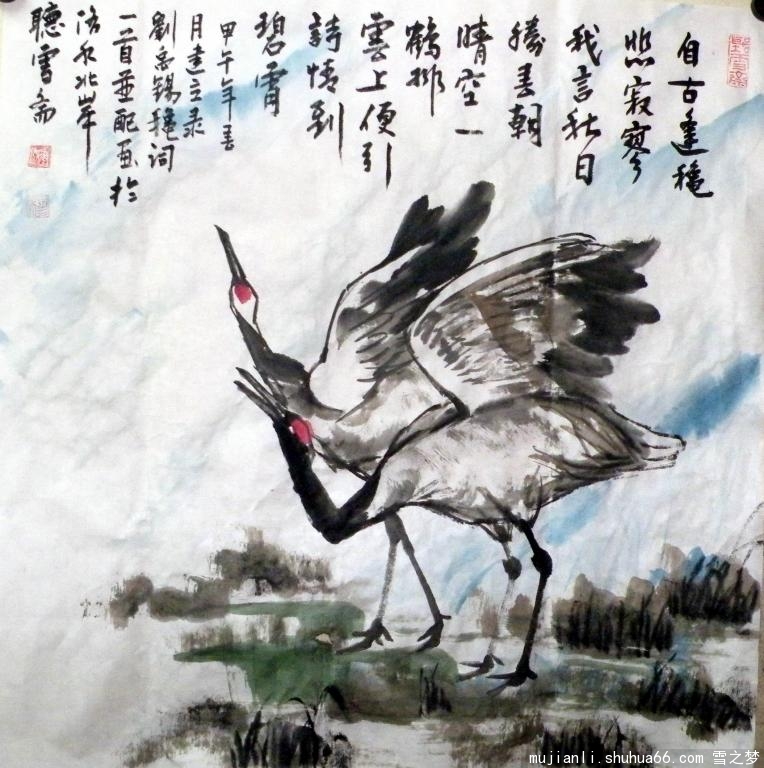 自古逢龝
悲寂寥
我言秋日
勝春朝
晴空一
鶴排
雲上便引
詩情到
碧霄
甲午年春
月建立录
劉禹锡龝词
一首並配画於
洛水北岸
聽雪斋
mujianli.shuhua66.com 雪之梦